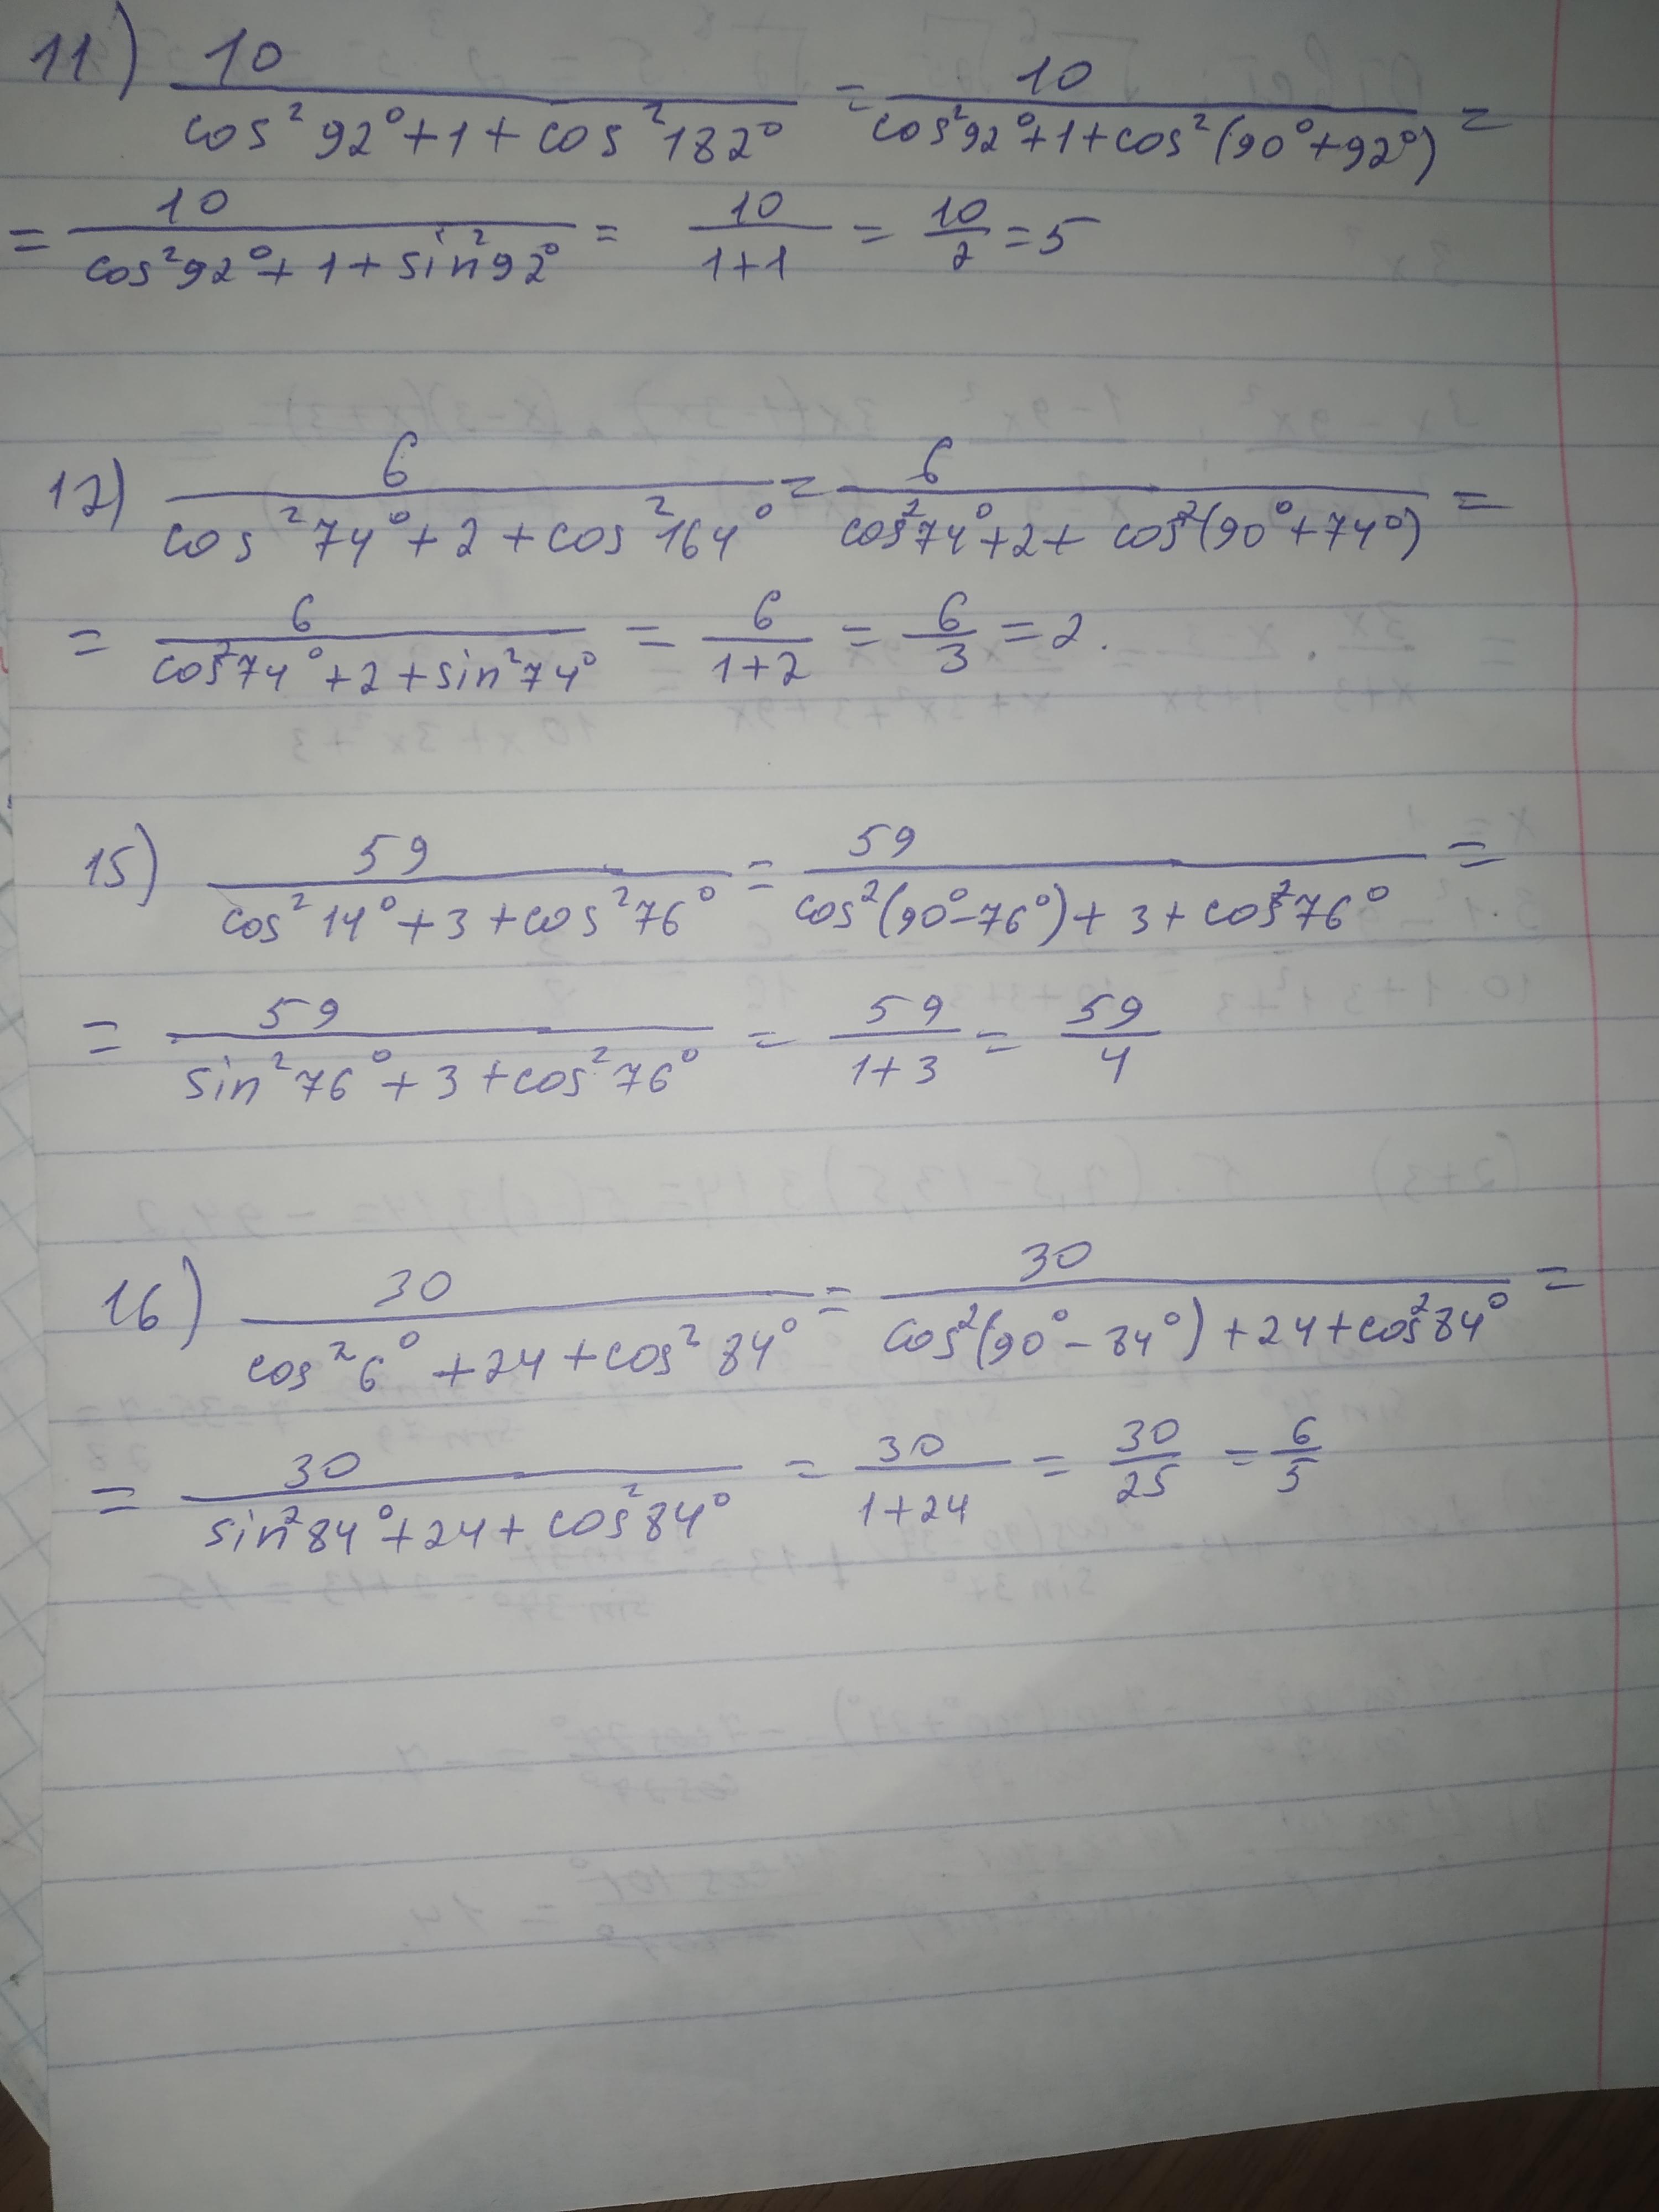 11) 10/(cos²92°+1+cos²182°) = 10/(cos²92°+1+cos²(90°+92°)) =
= 10/(cos²92°+1+sin²92°) = 10/(1+1) = 10/2 = 5
12) 6/(cos²74°+2+cos²164°) = 6/(cos²74°+2+cos²(90°+74°)) =
= 6/(cos²74°+2+sin²74°) = 6/(1+2) = 6/3 = 2.
15) 59/(cos²14°+3+cos²76°) = 59/(cos²(90°-76°)+3+cos²76°) =
= 59/(sin²76°+3+cos²76°) = 59/(1+3) = 59/4
16) 30/(cos²6°+24+cos²84°) = 30/(cos²(90°-84°)+24+cos²84°) =
= 30/(sin²84°+24+cos²84°) = 30/(1+24) = 30/25 = 6/5